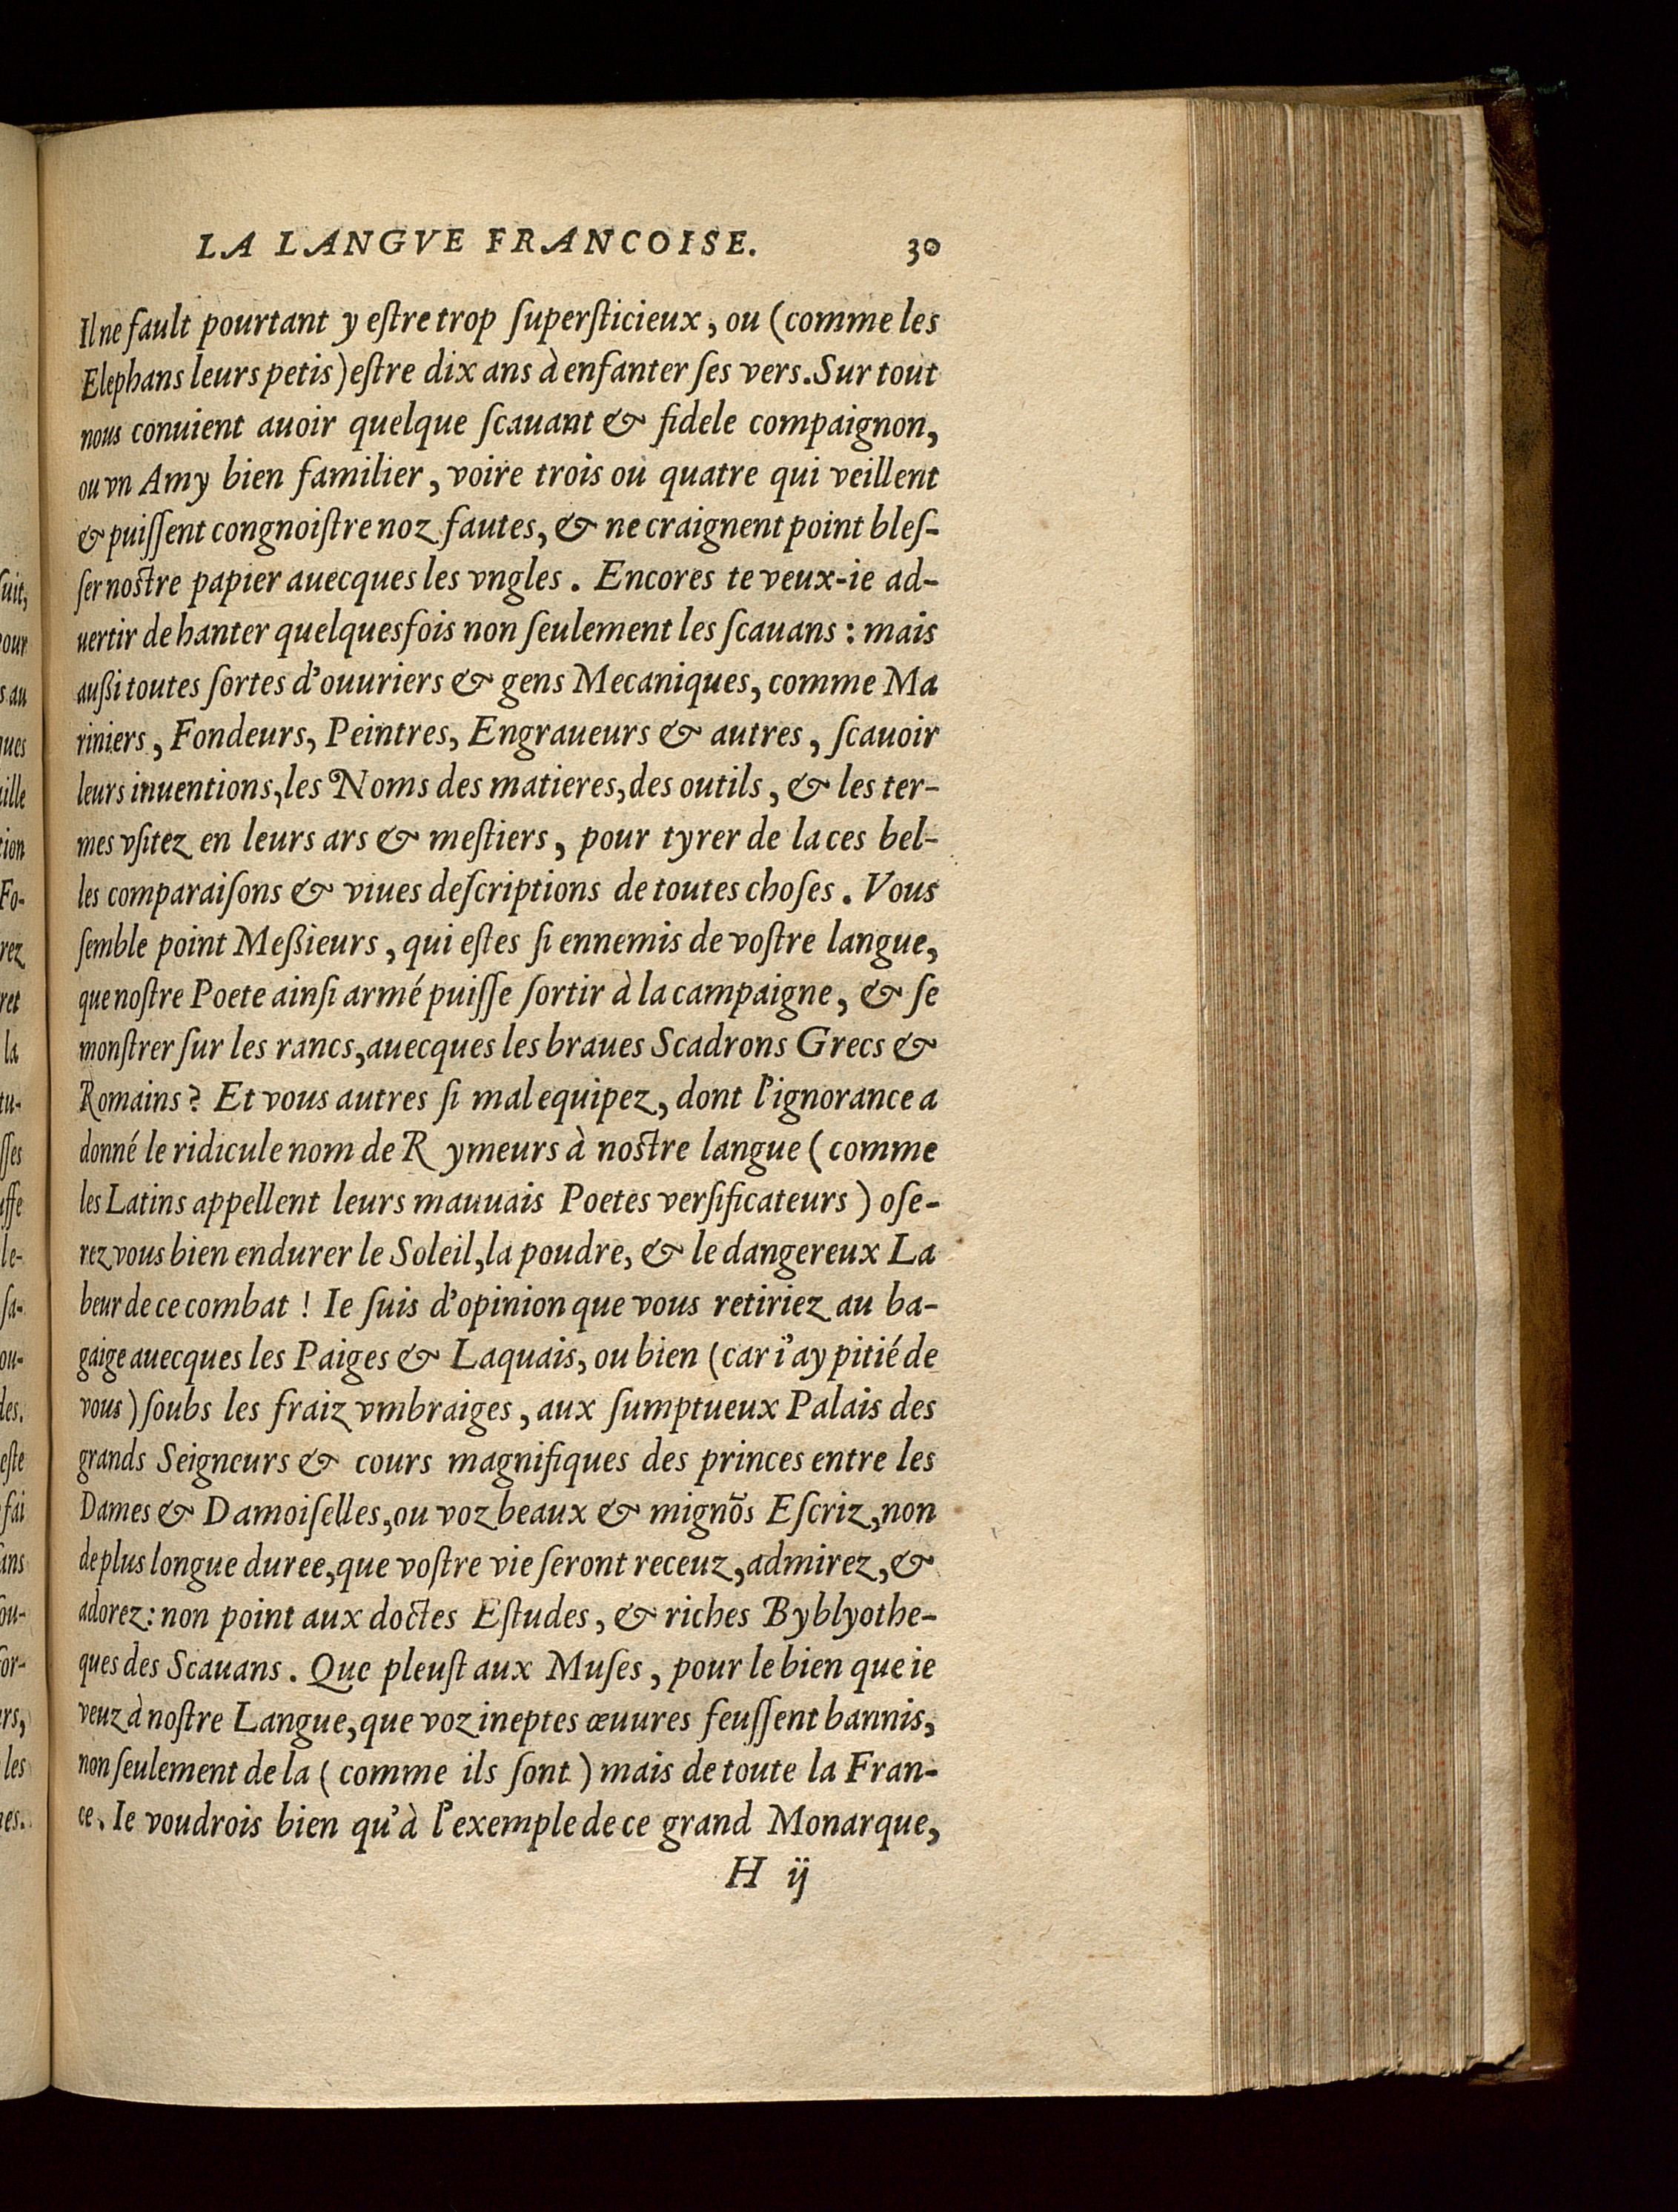 LA LANGVE FRANCOISE. 30
Il ne fault pourtant y eſtre trop ſuperſticieux, ou (comme les
Elephans leurs petis) eſtre dix ans à enfanter ſes vers. Sur tout
nous conuient auoir quelque ſcauant & fidele compaignon,
ou vn Amy bien familier, voire trois ou quatre qui veillent
& puiſſent congnoiſtre noz fautes, & ne craignent point bleſ-
ſer noſtre papier auecques les vngles. Encores te veux-ie ad-
uertir de hanter quelquesfois non ſeulement les ſcauans: mais
außi toutes ſortes d'ouuriers & gens Mecaniques, comme Ma
riniers, Fondeurs, Peintres, Engraueurs & autres, ſcauoir
leurs inuentions, les Noms des matieres, des outils, & les ter-
mes vſitez en leurs ars & meſtiers, pour tyrer de la ces bel-
les comparaiſons & viues deſcriptions de toutes choſes. Vous
ſemble point Meßieurs, qui eſtes ſi ennemis de voſtre langue,
que noſtre Poete ainſi armé puiſſe ſortir à la campaigne, & ſe
monſtrer ſur les rancs, auecques les braues Scadrons Grecs &
Romains? Et vous autres ſi mal equipez, dont l'ignorance a
donné le ridicule nom de Rymeurs à noſtre langue (comme
les Latins appellent leurs mauuais Poetes verſificateurs) oſe-
rez vous bien endurer le Soleil, la poudre, & le dangereux La
beur de ce combat! Ie ſuis d'opinion que vous retiriez au ba-
gaige auecques les Paiges & Laquais, ou bien (car i'ay pitié de
vous) ſoubs les fraiz vmbraiges, aux ſumptueux Palais des
grands Seigneurs & cours magnifiques des princes entre les
Dames & Damoiſelles, ou voz beaux & mignõs Eſcriz, non
de plus longue duree, que voſtre vie ſeront receuz, admirez, &
adorez: non point aux doctes Eſtudes, & riches Byblyothe-
ques des Scauans. Que pleuſt aux Muſes, pour le bien que ie
veuz à noſtre Langue, que voz ineptes œuures feuſſent bannis,
non ſeulement de la (comme ils ſont) mais de toute la Fran-
ce. Ie voudrois bien qu'à l'exemple de ce grand Monarque,
H ij